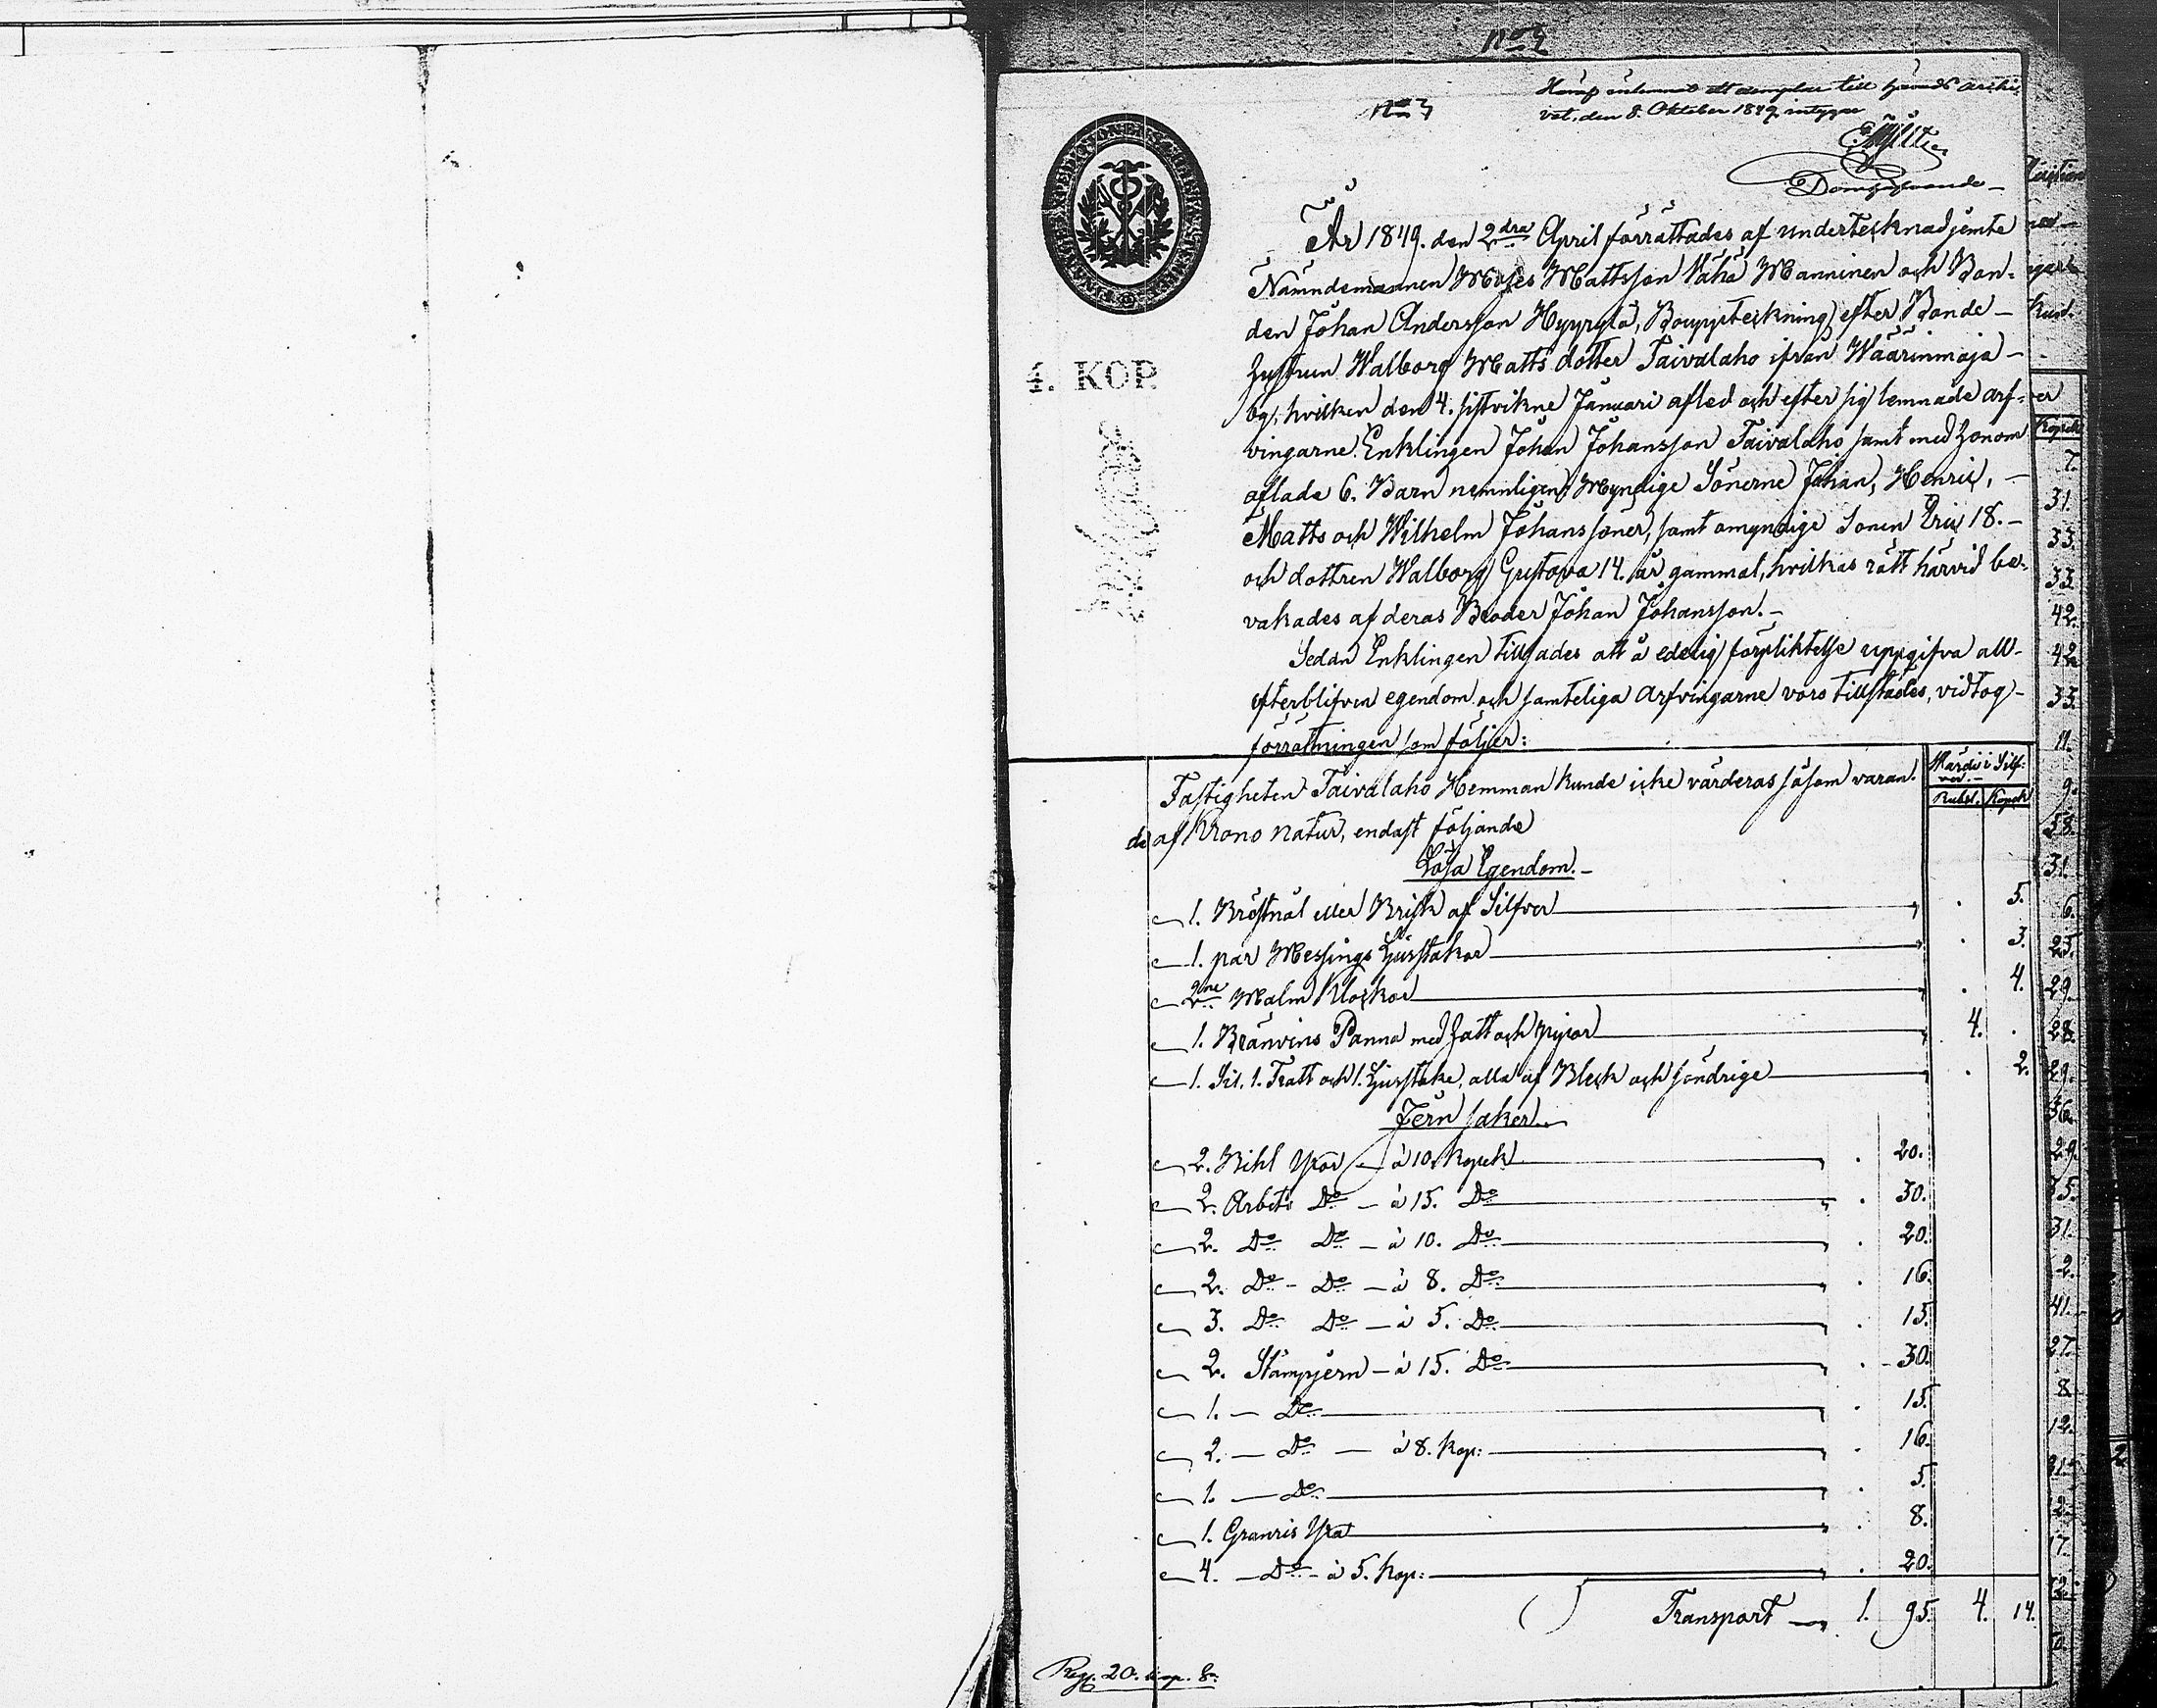 No 7
No 7
Häraf inlemnat ett exemplar till härads arki-
vet, den 8. Oktober 1849, intygar
Domhafvande
4. KOP.
År 1849. den 2dra April förrättades af undertecknad jemte
Nämndemannen Moses Mattsson Vähä Manninen och Bon-
den Johan Andersson Hyyrylä, Bouppteckning efter Bonde-
hustrun Walborg Matts dotter Taivalaho ifrån Wäärinmaja-
by, hvilken den 4. sistvikne Januari afled och efter sig lemnade arf-
vingarne: Enklingen Johan Johansson Taivalaho samt med honom
aflade 6. Barn nemnligen: Myndige Sönerne Johan, Henric,
Matts och Wilhelm Johanssöner, samt omyndige Sonen Eric 18.
och dottren Walborg Gustava 14. år gammal, hvilkas rätt härvid be-
vakades af deras Broder Johan Johansson.
Sedan Enklingen tillsades att å edelig förpliktelse uppgifva all
efterblifven egendom och samteliga arfvingarne voro tillstädes, vidtog
förrättningen som följer:
Värde i Silf-
ver.
Rubel. Kopek
Fastigheten Taivalaho Hemman kunde icke värderas såsom varan-
de af Krono natur, endast följande
Lösa Egendom.
1. Bröstnål eller Brisk af Silfver . 5.
1. par Messings Ljusstakar . 3.
2ne Malm Klockor . 4.
1. Bränvins Panna med hatt och pipor 4. .
1. Sil, 1. Tratt och 1. Ljusstake, alla af Bleck och söndrige . 2.
Jern saker.
2. Bihl Yxor à 10. Kopek . 20.
2. Arbets Do à 15. Do . 30.
2. Do Do à 10. Do . 20.
2. Do Do à 8. Do . 16.
3. Do Do à 5. Do . 15.
2. Stampjern à 15. Do . 30.
1. Do . 15.
2. Do à 8. Kop: . 16.
1. Do . 5.
1. Granris Yxa . 8.
4. Do à 5. Kop: . 20.
Transport 1. 95. 4. 14.
Kopek
7.
31.
33.
33.
42.
42.
33.
11.
9.
58.
31.
6.
25.
29.
28.
29.
36.
29.
35.
31.
2.
41.
27.
8.
12.
31.
2.
17.
2.